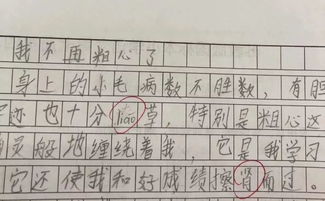 我不再粗心了
身上的小毛病数不胜数，有胆
字迹也十分liáo草，特别是粗心这
灵般地缠绕着我，它是我学习
它还使我和好成绩擦肾而过。